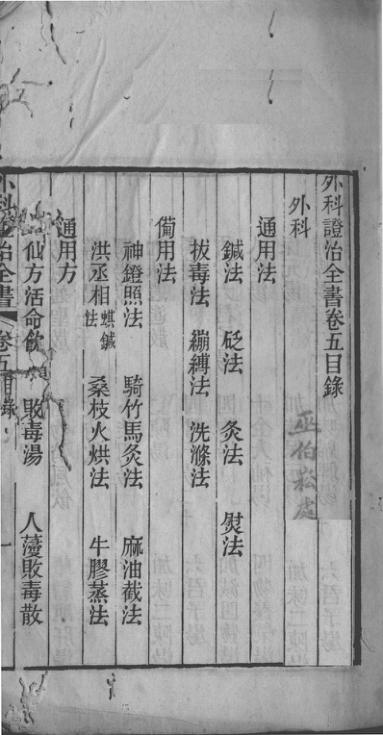 外科證治全書卷五目錄
外科
巫伯崧處
通用法
鍼法　砭法　灸法　熨法
拔毒法　繃縛法　洗滌法
備用法
神鐙照法　騎竹馬灸法　麻油截法
洪丞相蜞鍼法　桑枝火烘法　牛膠蒸法
通用方
仙方活命飲　敗毒湯　人薓敗毒散
外科證治全書　卷五目錄　一